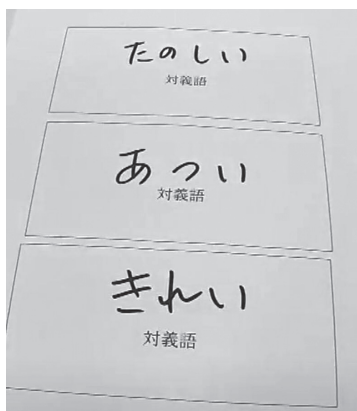 たのしい
対義語
あつい
対義語
きれい
対義語